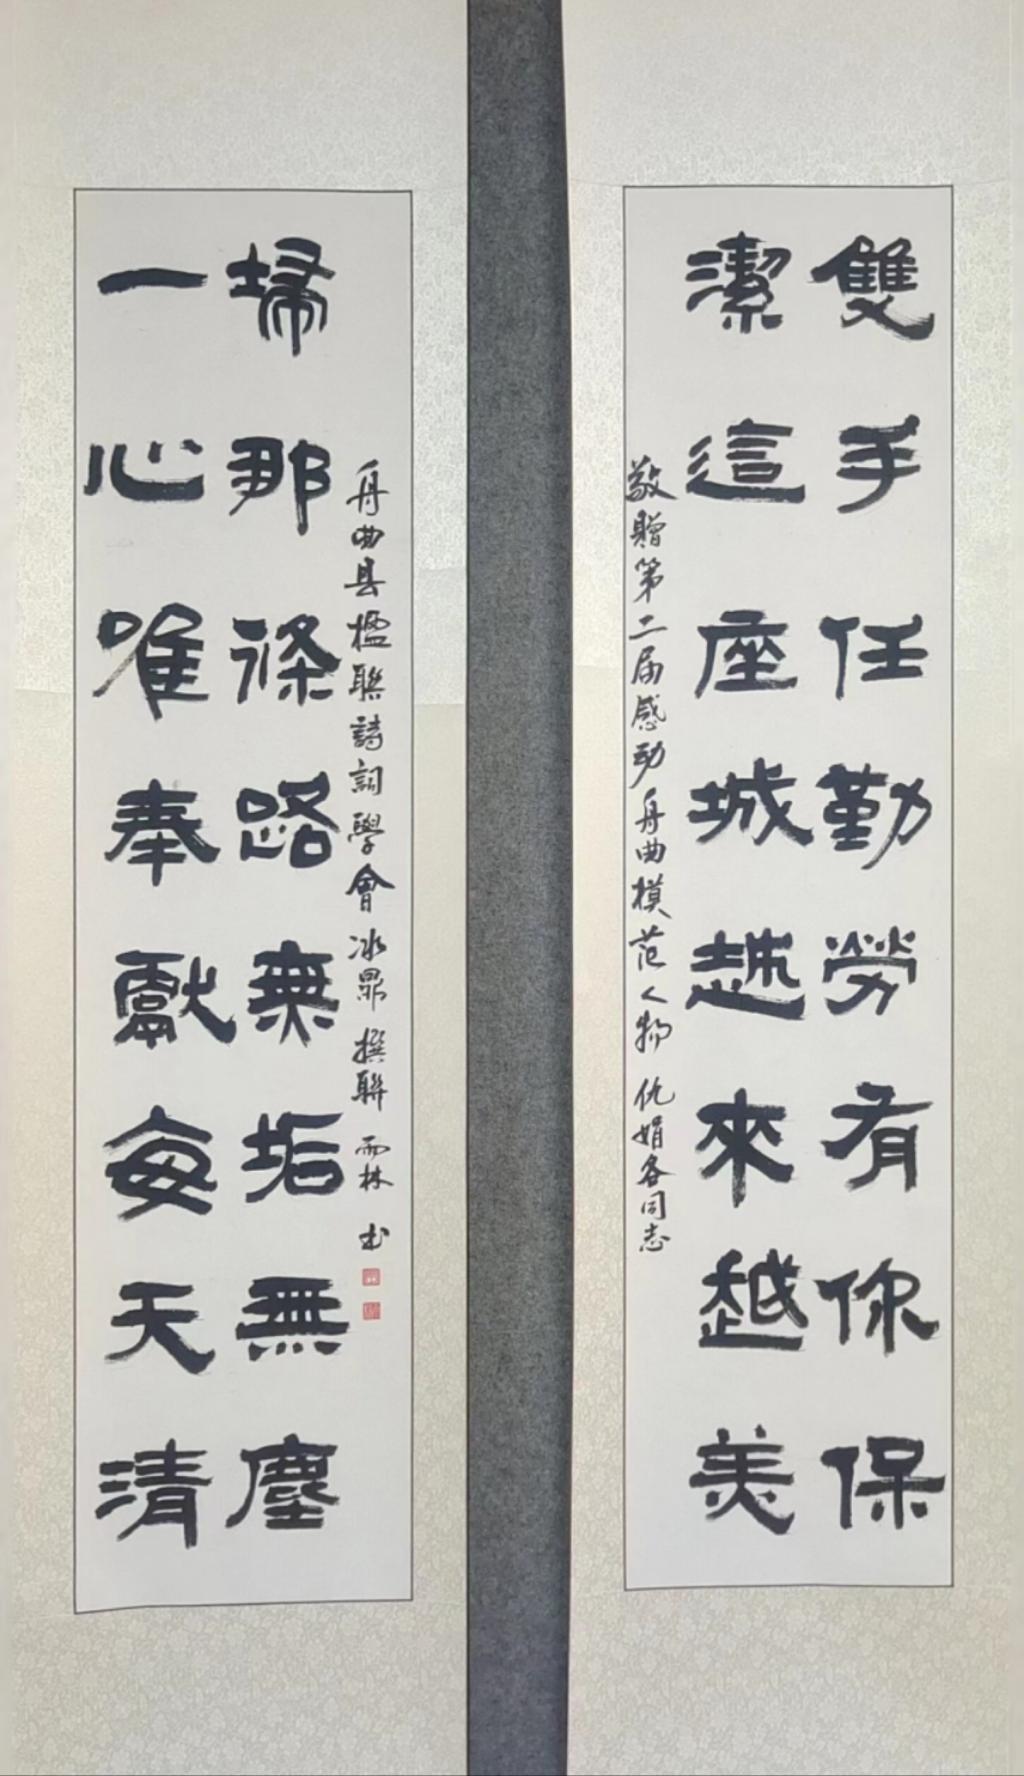 雙手任勤勞有你保
潔這座城越來越美
敬贈第二届感动舟曲模范人物 仇娟各同志
一心唯奉獻每天清
埽那條路無垢無塵
舟曲县楹聯詩詞學會冰鼎撰聯 雨林 书